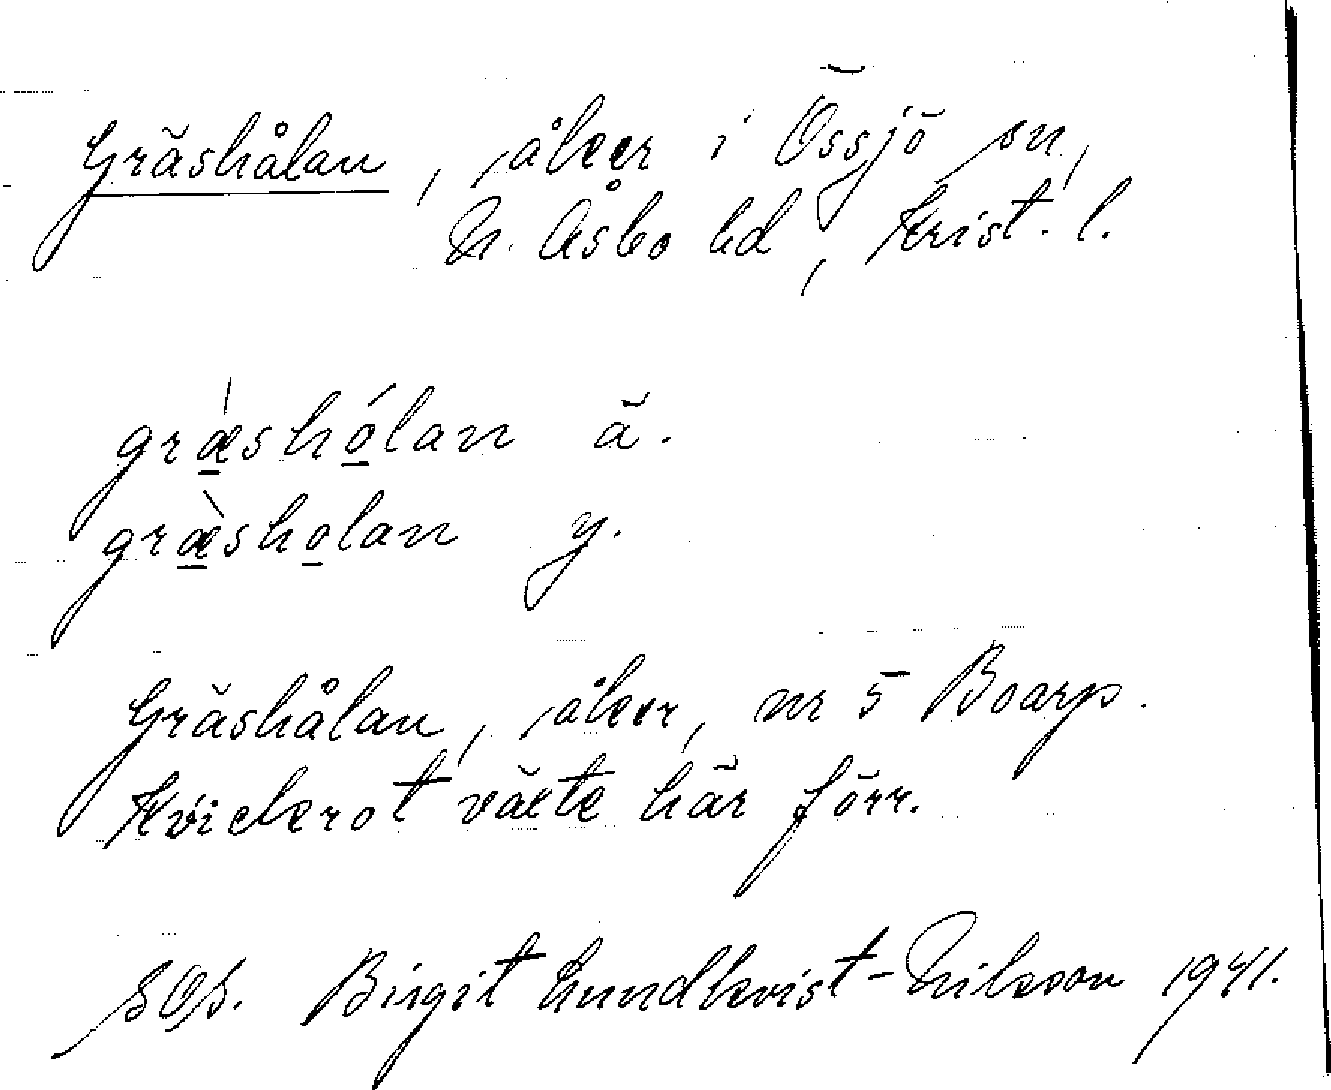 Gräshålan, åker i Össjö sn,
N. Åsbo hd, Krist. l.
grǽshólan ä.
græ̀sholan y.
Gräshålan, åker, nr 5 Boarp.
Kvickrot växte här förr.
SOS. Birgit Lundkvist-Nilsson 1941.